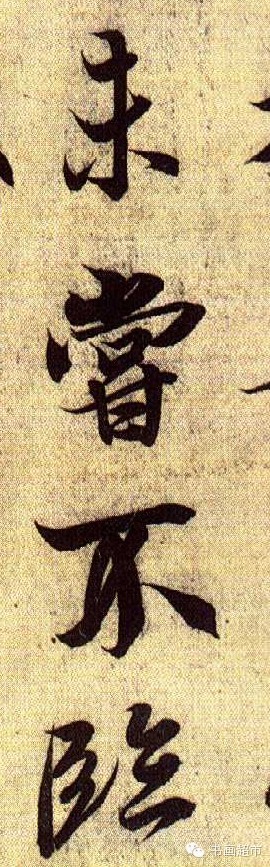 未甞不臨
书画超市